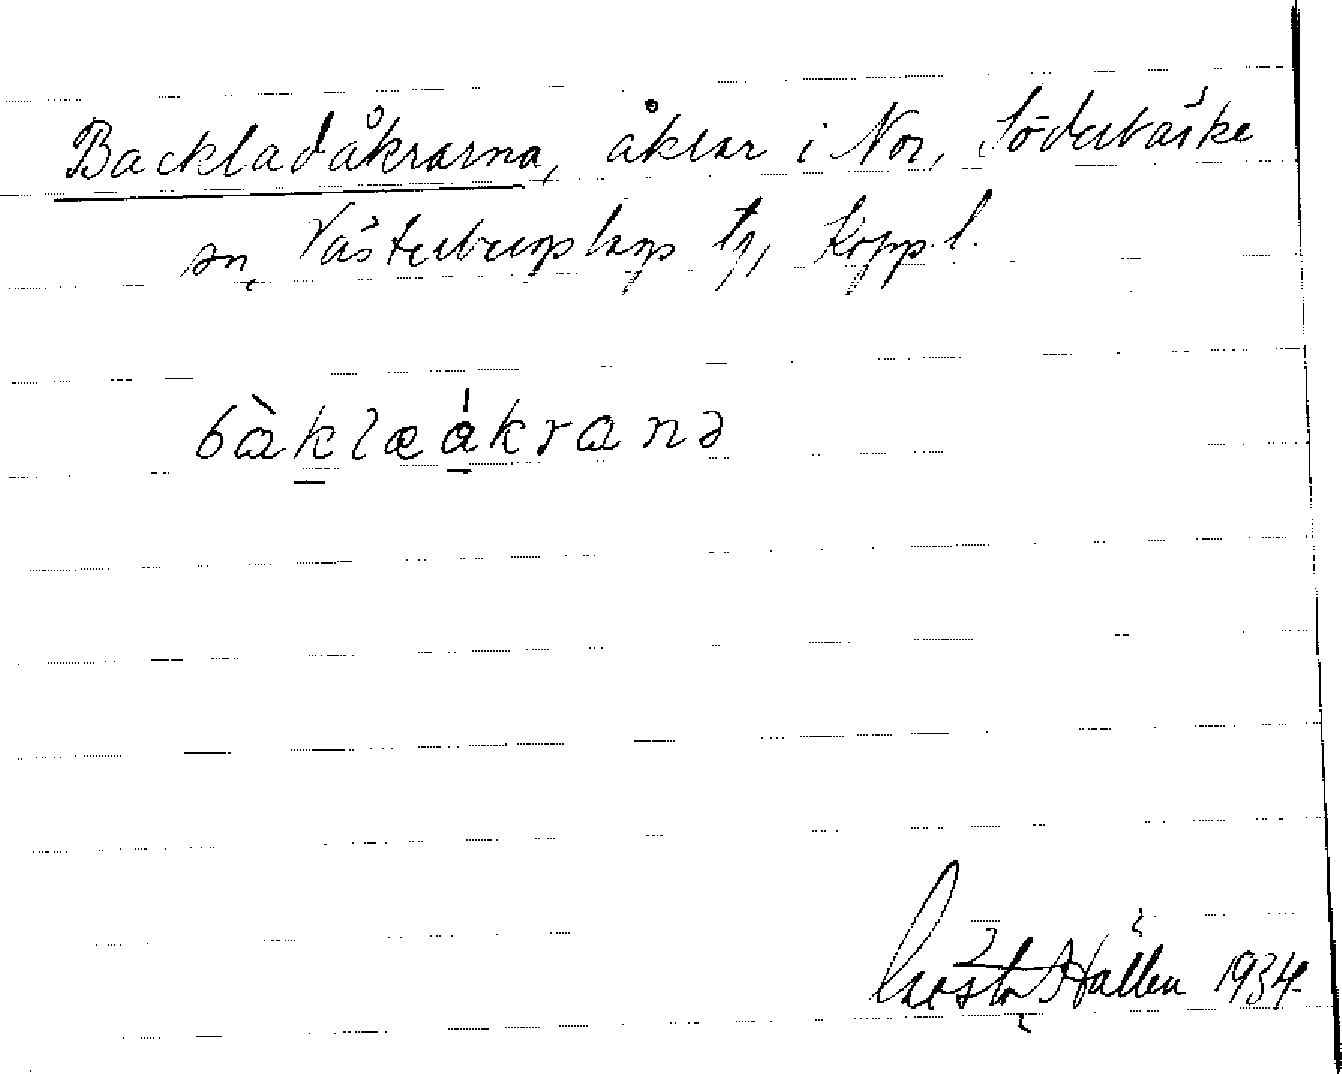 Backladåkrarna, åkrar i Nor, Söderbärke
sn, Västerbergslags tg, Kopp. l.
bàklæákranə
Gösta Hällen 1934